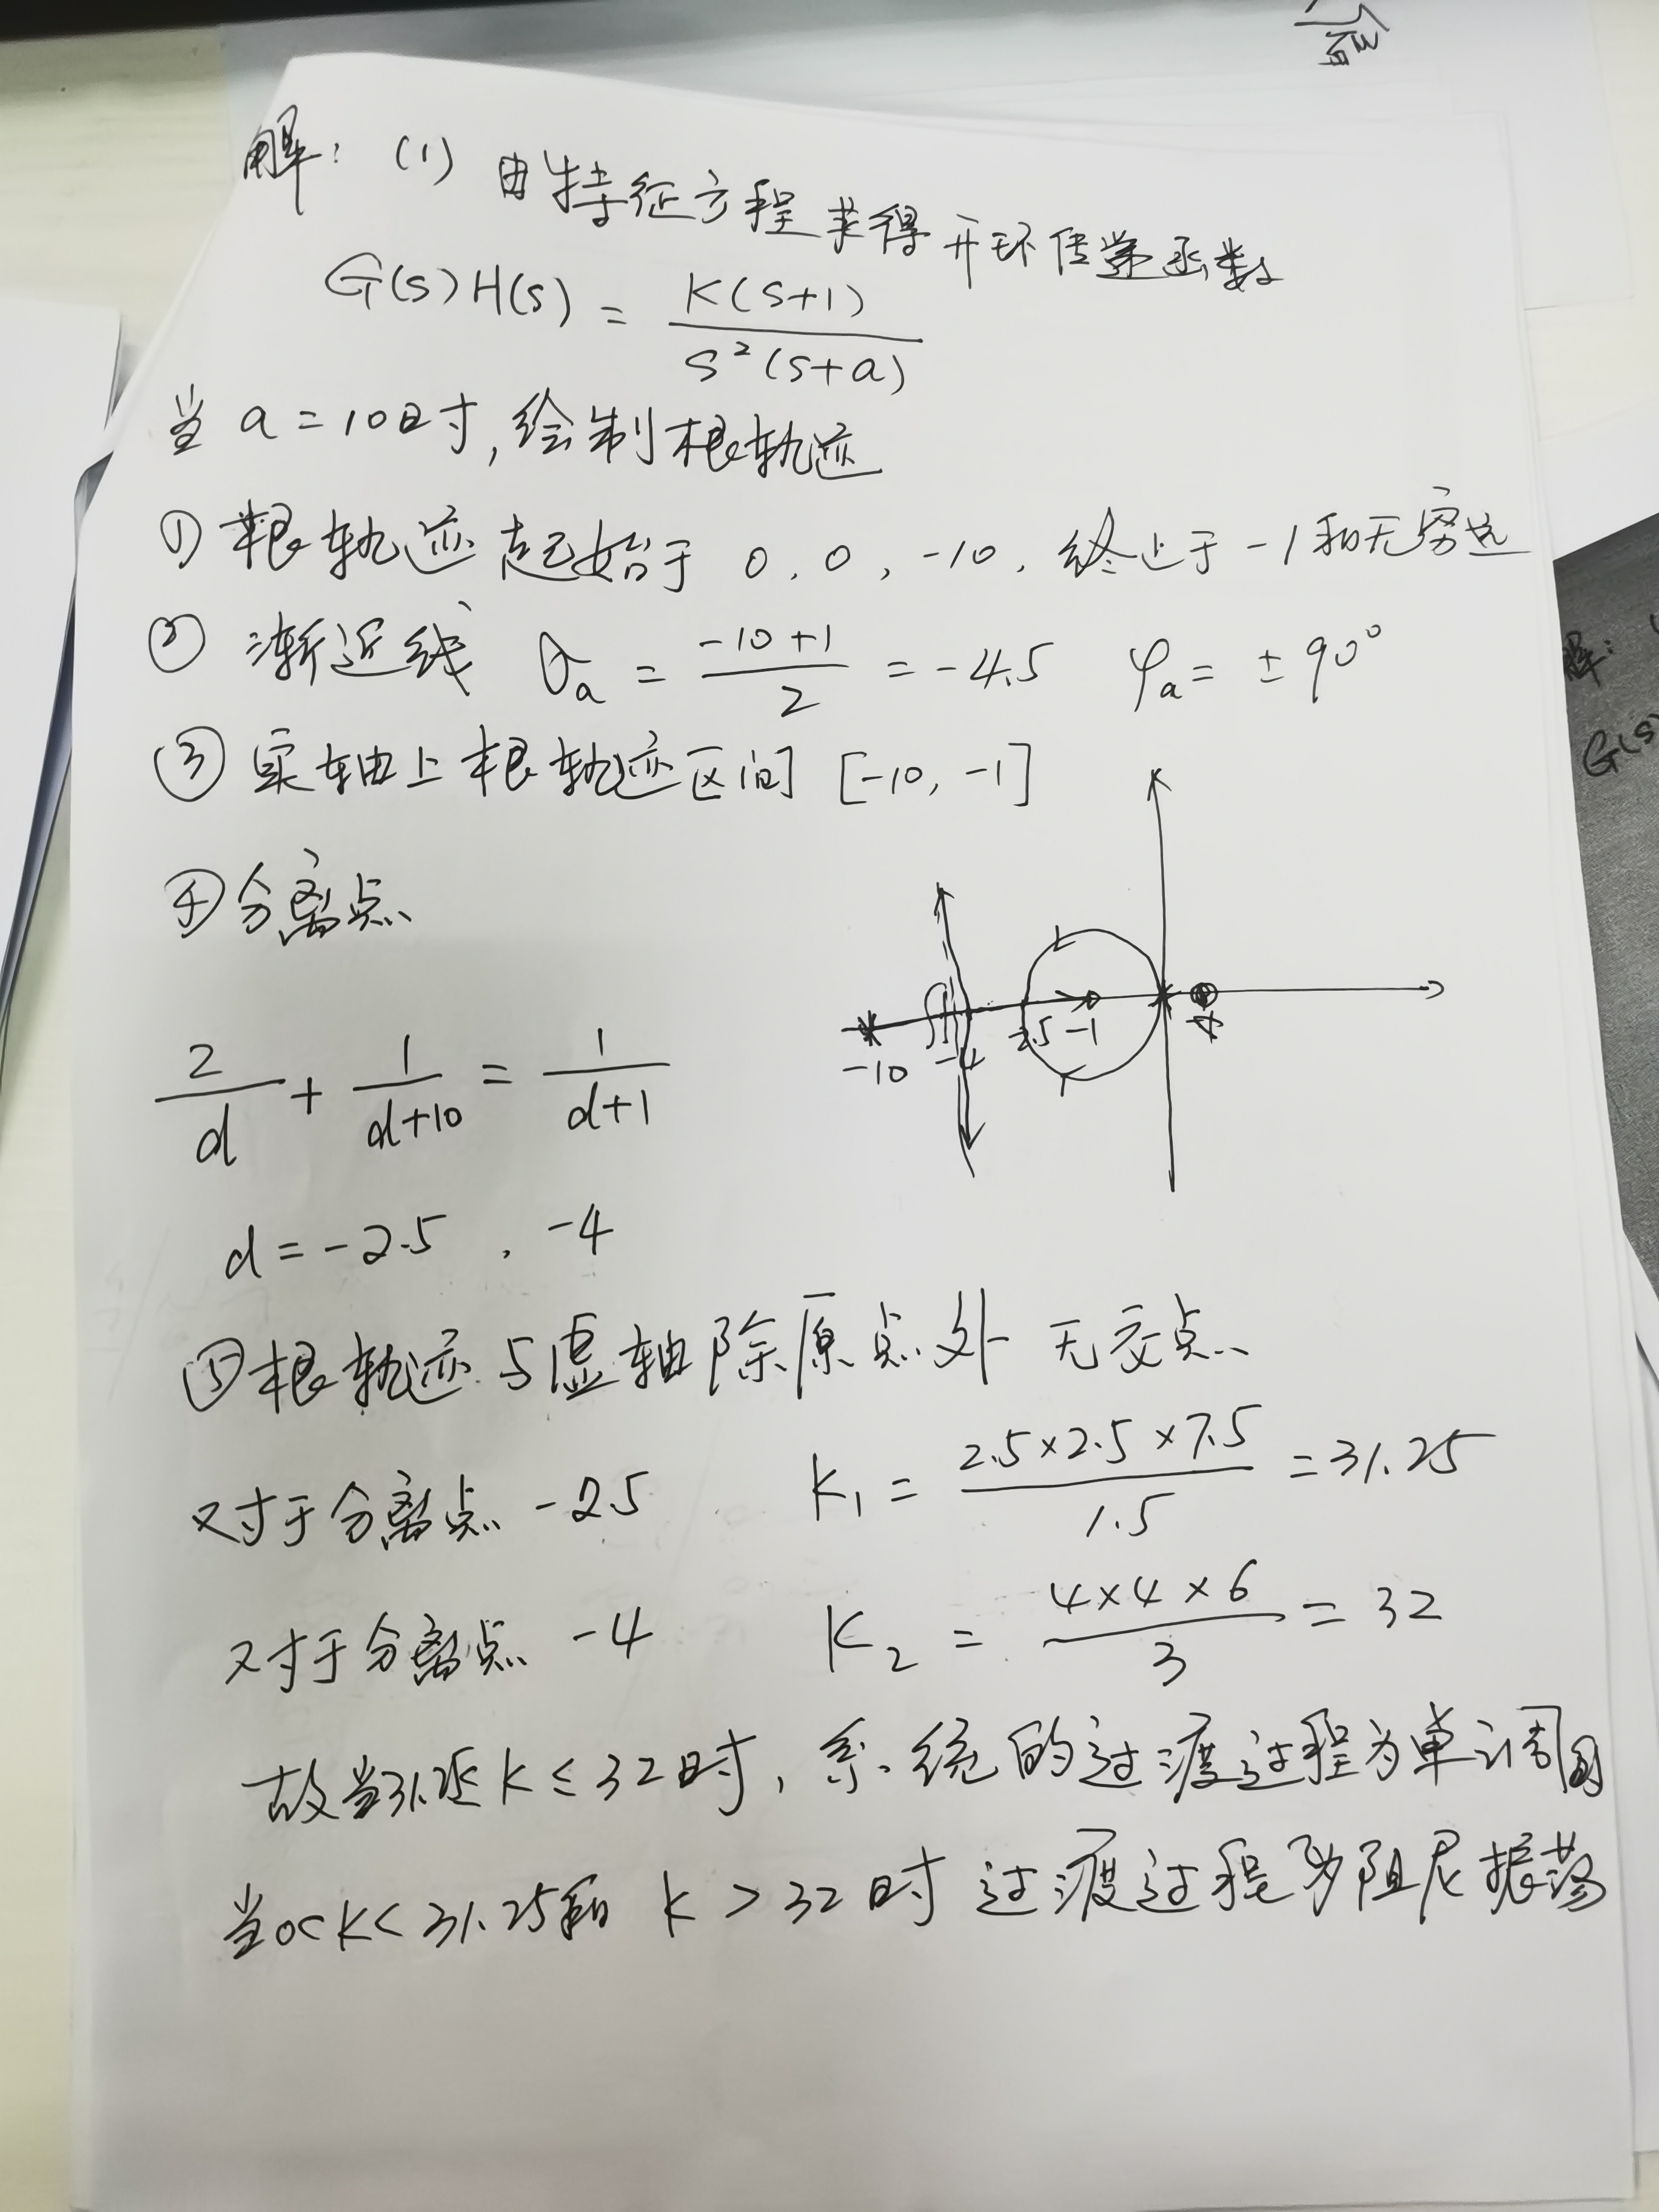 解：(1) 由特征方程求得开环传递函数
G(s)H(s) = K(s+1) / s²(s+a)
当 a=10时,绘制根轨迹
① 根轨迹起始于 0, 0, -10, 终止于 -1和无穷远
② 渐近线 σa = (-10+1) / 2 = -4.5 φa = ±90°
③ 实轴上根轨迹区间 [-10, -1]
④ 分离点
-10 -4 -2.5 -1
2/d + 1/(d+10) = 1/(d+1)
d = -2.5 , -4
⑤ 根轨迹与虚轴除原点外 无交点
对于分离点 -2.5 K₁ = 2.5×2.5×7.5 / 1.5 = 31.25
对于分离点 -4 K₂ = 4×4×6 / 3 = 32
故当31.25≤K≤32时, 系统的过渡过程为单调的
当0<K<31.25和 K>32时 过渡过程为阻尼振荡
解:
G(s)